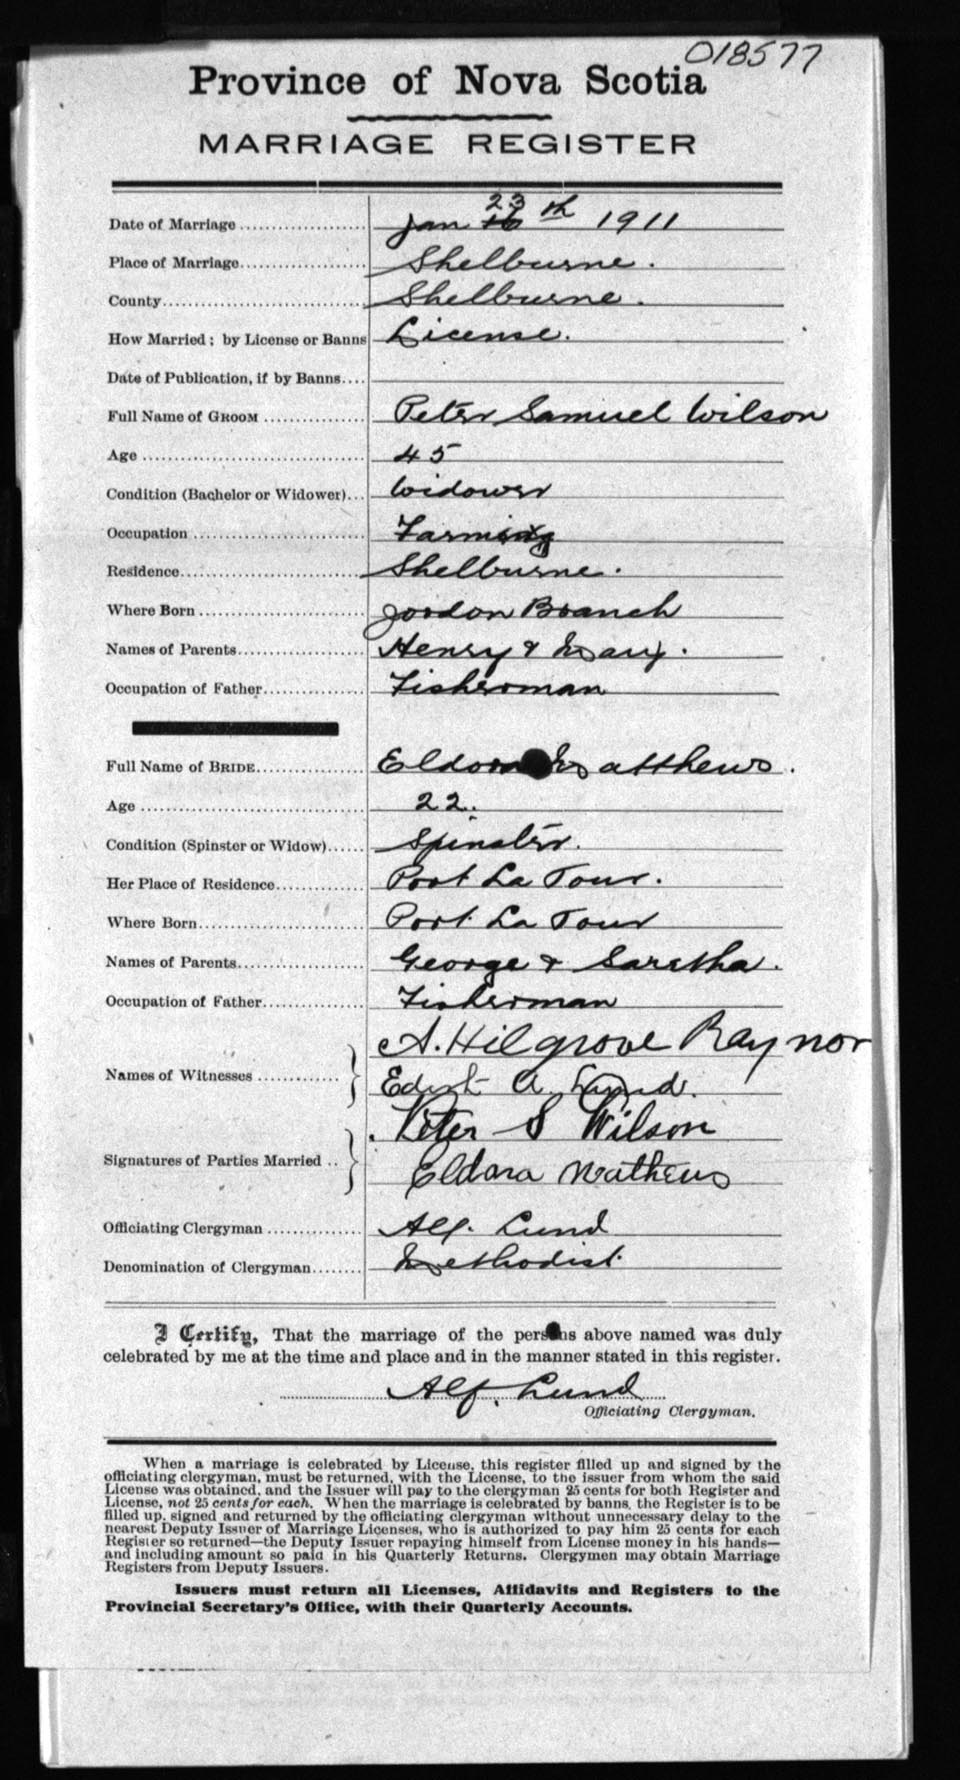 018577
Province of Nova Scotia
MARRIAGE REGISTER
Date of Marriage Jan 23 th 1911
Place of Marriage Shelburne.
County Shelburne.
How Married; by License or Banns License.
Date of Publication, if by Banns
Full Name of GROOM Peter Samuel Wilson
Age 45
Condition (Bachelor or Widower) Widower
Occupation Farming
Residence Shelburne.
Where Born Jordon Branch
Names of Parents Henry & Mary.
Occupation of Father Fisherman
Full Name of BRIDE Eldora Matthews.
Age 22.
Condition (Spinster or Widow) Spinster.
Her Place of Residence Port La Tour.
Where Born Port La Tour
Names of Parents George & Saretha.
Occupation of Father Fisherman
A. Hilgrove Raynor
Names of Witnesses
A. Lund.
Peter S Wilson
Signatures of Parties Married
Eldora Mathews
Officiating Clergyman Alf. Lund
Denomination of Clergyman Methodist
I Certify, That the marriage of the persons above named was duly
celebrated by me at the time and place and in the manner stated in this register.
Alf. Lund
Officiating Clergyman.
When a marriage is celebrated by License, this register filled up and signed by the
officiating clergyman, must be returned, with the License, to the issuer from whom the said
License was obtained, and the Issuer will pay to the clergyman 25 cents for both Register and
License, not 25 cents for each. When the marriage is celebrated by banns, the Register is to be
filled up, signed and returned by the officiating clergyman without unnecessary delay to the
nearest Deputy Issuer of Marriage Licenses, who is authorized to pay him 25 cents for each
Register so returned—the Deputy Issuer repaying himself from License money in his hands—
and including amount so paid in his Quarterly Returns. Clergymen may obtain Marriage
Registers from Deputy Issuers.
Issuers must return all Licenses, Affidavits and Registers to the
Provincial Secretary's Office, with their Quarterly Accounts.